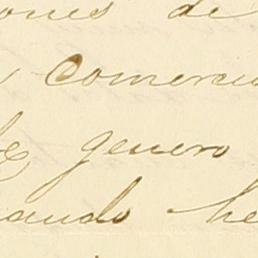 ones de
comercia
genero
ando he